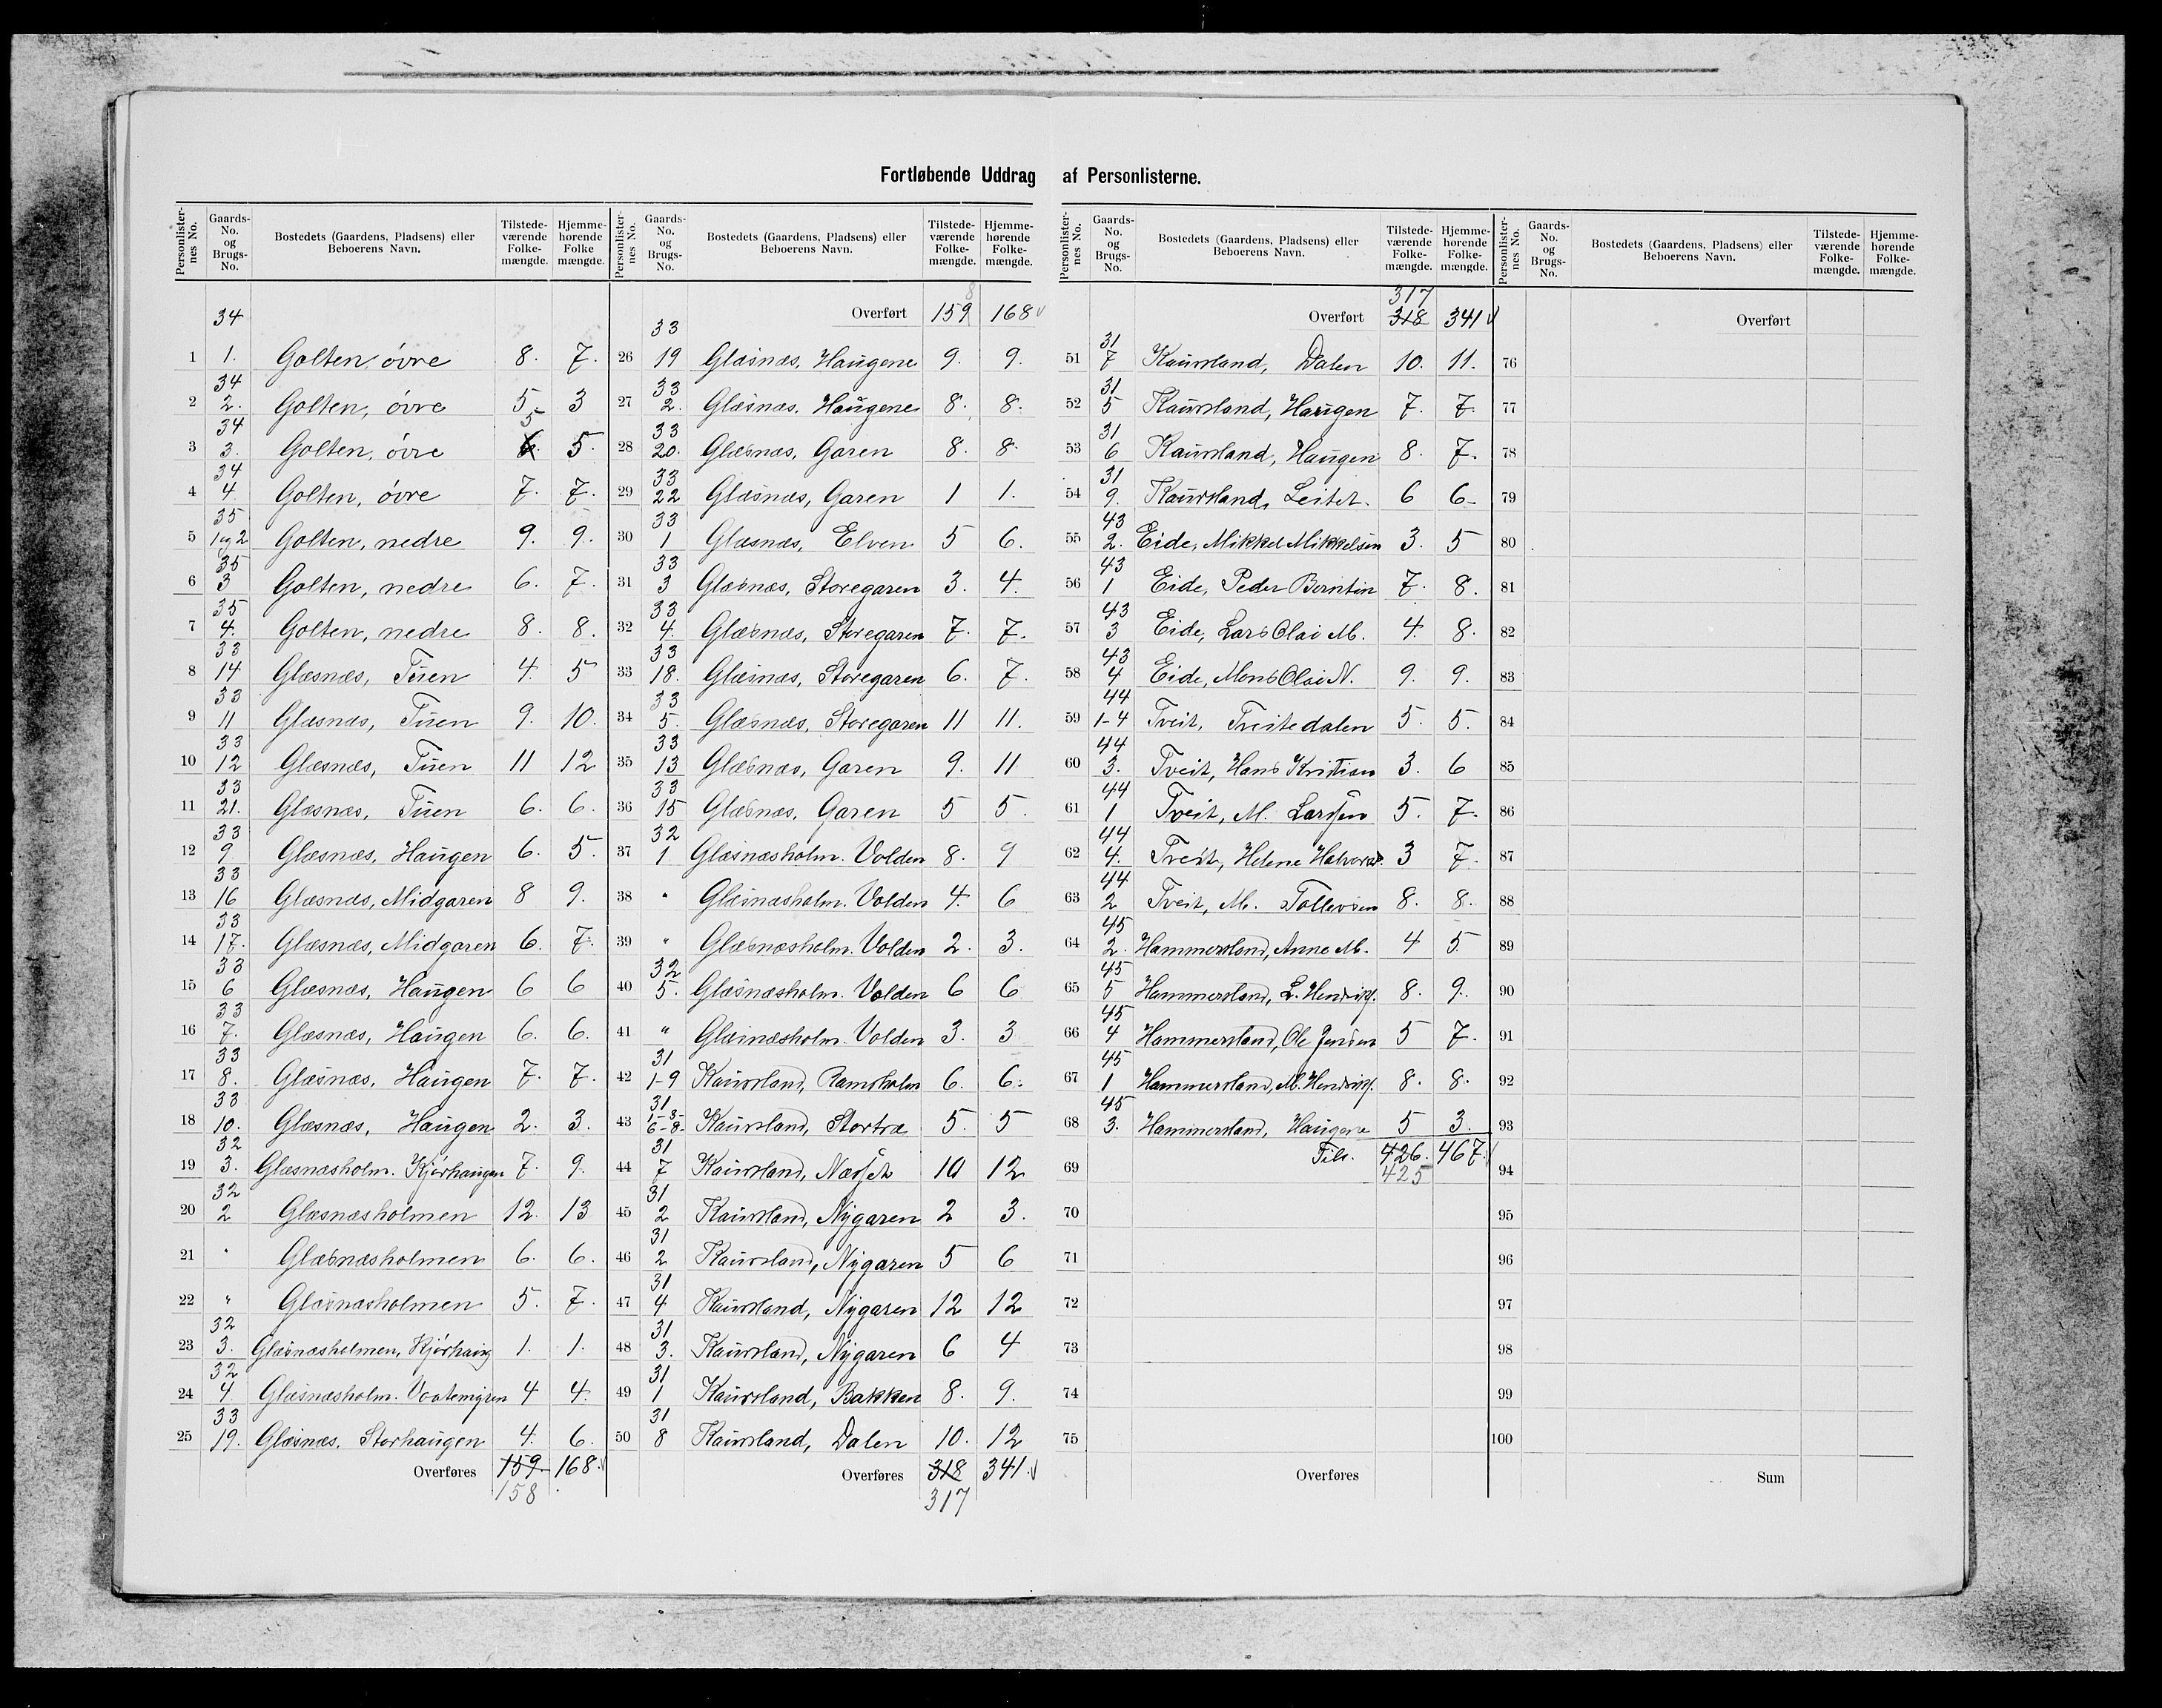 Fortløbende Uddrag af Personlisterne.
Personlister-nes No. Gaards-No. og Brugs-No. Bostedets (Gaardens, Pladsens) eller Beboerens Navn. Tilstede-værende Folke-mængde. Hjemme-hørende Folke-mængde.
1 34 1. Golten, övre 8. 7.
2 34 2. Golten, övre 5 3
3 34 3. Golten, övre 6. 5 5.
4 34 4. Golten, övre 7. 7.
5 35 1 og 2 Golten, nedre 9. 9.
6 35 3 Golten, nedre 6. 7.
7 35 4. Golten, nedre 8. 8.
8 33 14 Glæsnæs, Tüen 4. 5
9 33 11 Glæsnæs, Tüen 9. 10.
10 33 12 Glæsnæs, Tüen 11 12
11 33 21. Glæsnæs, Tüen 6. 6.
12 33 9 Glæsnæs, Haugen 6. 5.
13 33 16 Glæsnæs, Midgaren 8 9.
14 33 17. Glæsnæs, Midgaren 6. 7.
15 33 6 Glæsnæs, Haugen 6 6
16 33 7. Glæsnæs, Haugen 6. 6.
17 33 8. Glæsnæs, Haugen 7. 7.
18 33 10. Glæsnæs, Haugen 2. 3.
19 32 3. Glæsnæsholm. Kjörhaugen 7. 9.
20 32 2 Glæsnæsholmen 12. 13
21 " Glæsnæsholmen 6. 6.
22 " Glæsnæsholmen 5. 7.
23 32 3. Glæsnæsholmen, Kjörhaug 1. 1.
24 32 4 Glæsnæsholm. 4 4.
25 33 19. Glæsnæs, Storhaugen 4. 6.
Overføres 159 168.
158
Personlister-nes No. Gaards-No. og Brugs-No. Bostedets (Gaardens, Pladsens) eller Beboerens Navn. Tilstede-værende Folke-mængde. Hjemme-hørende Folke-mængde.
8
Overført 159 168
26 33 19 Glæsnæs, Haugene 9. 9.
27 33 2. Glæsnæs, Haugene 8. 8.
28 33 20. Glæsnæs, Garen 8. 8.
29 33 22 Glæsnæs, Garen 1 1.
30 33 1 Glæsnæs, Elven 5 6.
31 33 3 Glæsnæs, Storegaren 3. 4.
32 33 4. Glæsnæs, Storegaren 7. 7.
33 33 18. Glæsnæs, Storegaren 6. 7.
34 33 5. Glæsnæs, Storegaren 11 11.
35 33 13 Glæsnæs, Garen 9. 11
36 33 15 Glæsnæs, Garen 5 5.
37 32 1 Glæsnæsholm. Volden 8. 9
38 " Glæsnæsholm. Volden 4. 6
39 " Glæsnæsholm. Volden 2. 3.
40 32 5. Glæsnæsholm. Volden 6 6
41 " Glæsnæsholm. Volden 3. 3
42 31 1-9 Kaursland, Ramsholm 6. 6.
43 31 Kaursland, Stortræ 5. 5
44 31 7 Kaursland, Næsset 10 12
45 31 2 Kaursland, Nygaren 2 3.
46 31 2 Kaursland, Nygaren 5 6
47 31 4 Kaursland, Nygaren 12 12
48 31 3. Kaursland, Nygaren 6 4
49 31 1 Kaursland, Bakken 8. 9.
50 31 8 Kaursland, Dalen 10. 12
Overføres 318 341.
317
Personlister-nes No. Gaards-No. og Brugs-No. Bostedets (Gaardens, Pladsens) eller Beboerens Navn. Tilstede-værende Folke-mængde. Hjemme-hørende Folke-mængde.
317
Overført 318 341
51 31 7 Kaursland, Dalen 10. 11.
52 31 5 Kaursland, Haugen 7. 7.
53 31 6 Kaursland, Haugen 8. 7.
54 31 9. Kaursland, Leitet. 6 6
55 43 2. Eide, Mikkel Mikkelsen 3. 5
56 43 1 Eide, Peder Berntin 7. 8.
57 43 3 Eide, Lars Olai M. 4. 8.
58 43 4 Eide, Mons Olai N. 9. 9.
59 44 1-4 Tveit, Tveitedalen 5. 5.
60 44 3. Tveit, Hans Kristian 3. 6
61 44 1 Tveit, M. Larssen 5. 7.
62 44 4. Tveit, Helene Halvorsd. 3 7.
63 44 2 Tveit, M. Tollevsen 8. 8.
64 45 2. Hammersland, Anne M. 4 5
65 45 5 Hammersland, L. Henriks. 8. 9.
66 45 4 Hammersland, Ole Jensen 5 7.
67 45 1 Hammersland, M. Henriks. 8. 8.
68 45 3. Hammersland, Haugene 5 3.
69 Tils. 426. 467.
425
70
71
72
73
74
75
Overføres
Personlister-nes No. Gaards-No. og Brugs-No. Bostedets (Gaardens, Pladsens) eller Beboerens Navn. Tilstede-værende Folke-mængde. Hjemme-hørende Folke-mængde.
Overført
76
77
78
79
80
81
82
83
84
85
86
87
88
89
90
91
92
93
94
95
96
97
98
99
100
Sum